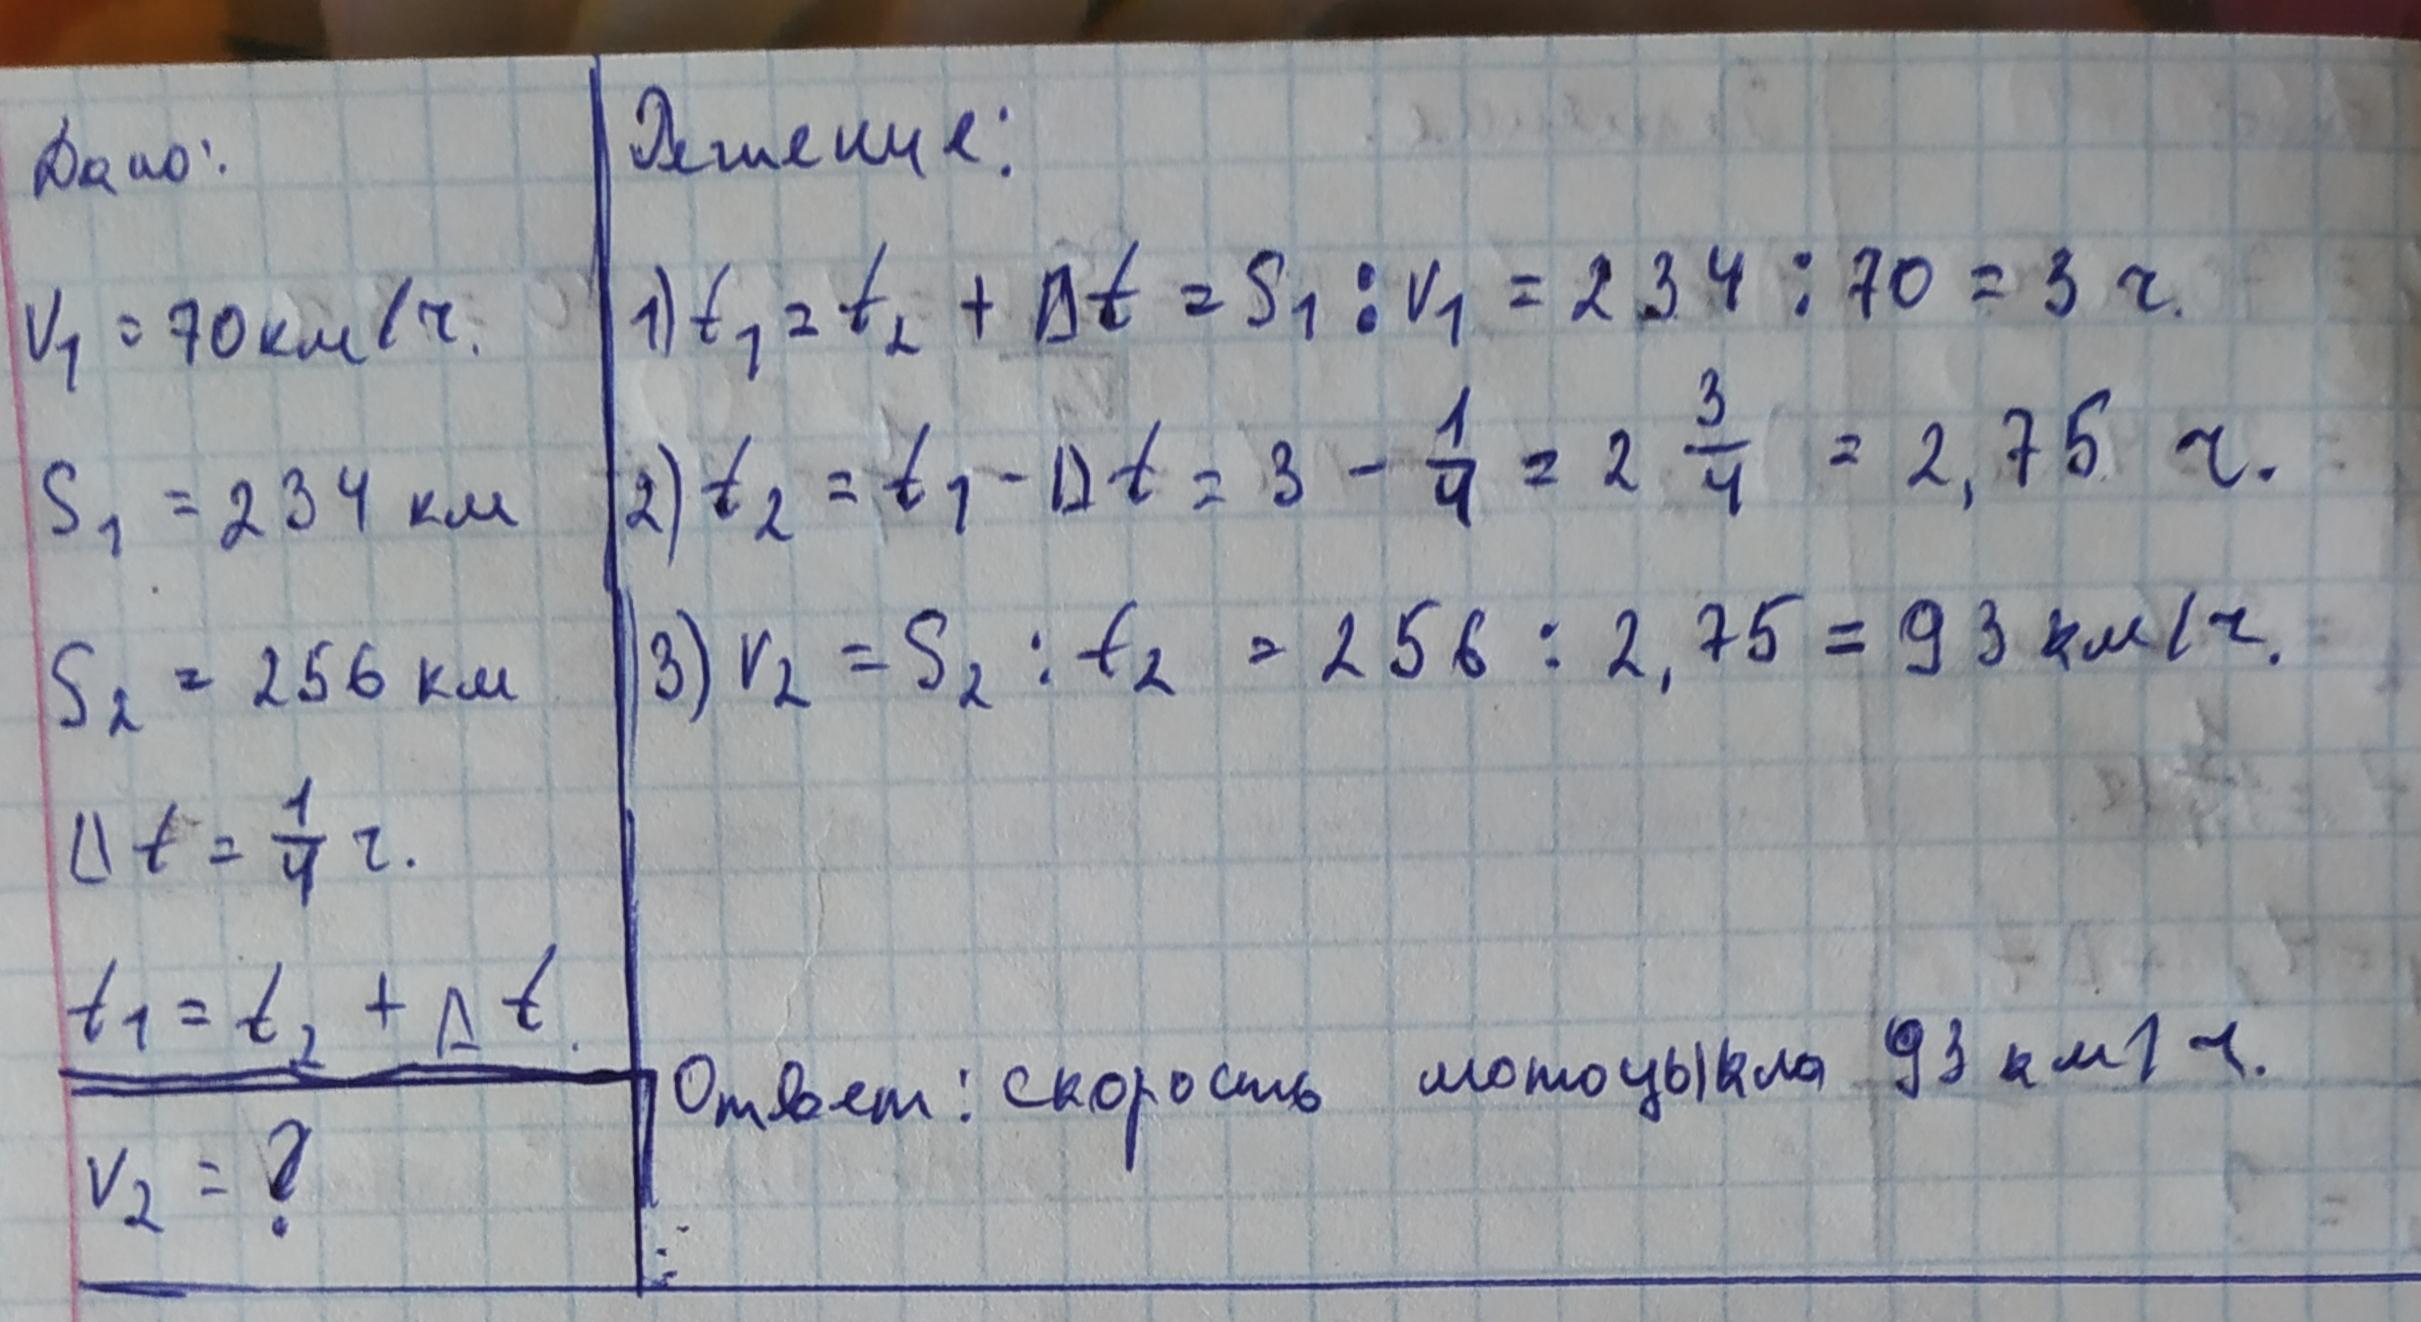 Дано:
V₁ = 70 км/ч.
S₁ = 234 км
S₂ = 256 км
Δt = 1/4 ч.
t₁ = t₂ + Δt.
V₂ = ?
Решение:
1) t₁ = t₂ + Δt = S₁ : V₁ = 234 : 70 = 3 ч.
2) t₂ = t₁ - Δt = 3 - 1/4 = 2 3/4 = 2,75 ч.
3) V₂ = S₂ : t₂ = 256 : 2,75 = 93 км/ч.
Ответ: скорость мотоцыкла 93 км/ч.